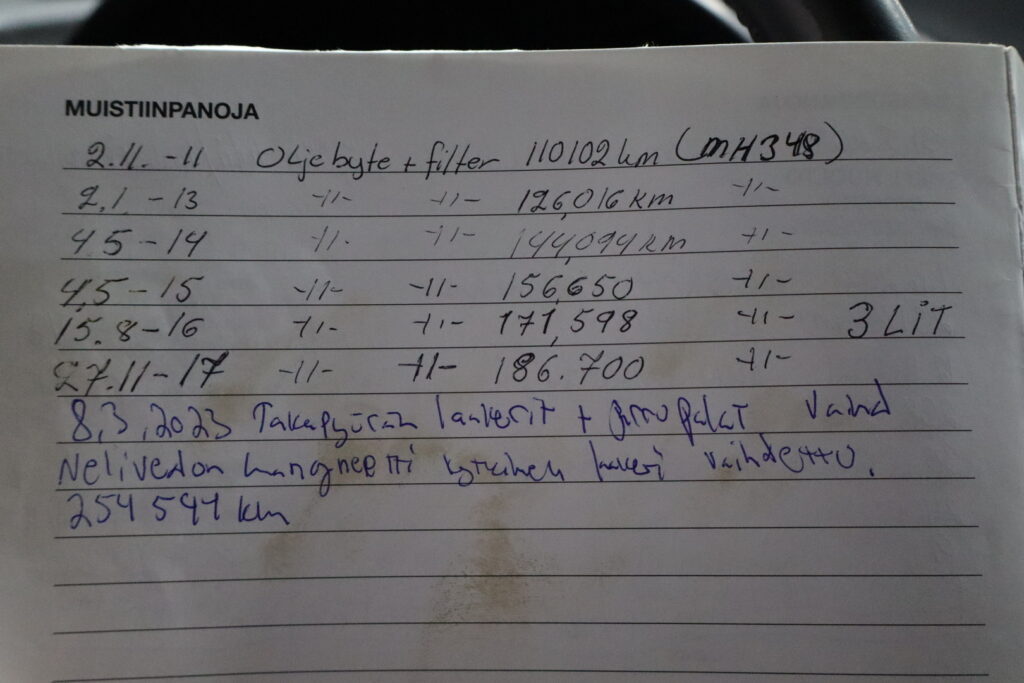 MUISTIINPANOJA
2.11. -11 Oljebyte + filter 110102 km (MH348)
2,1. -13 -11- -11- 126,016 km -11-
4.5 -14 -11- -11- 144,094 km -11-
4,5 -15 -11- -11- 156,650 -11-
15.8 -16 -11- -11- 171,598 -11- 3 LIT
27.11 -17 -11- -11- 186.700 -11-
8,3,2023 Takapyörän laakerit + jarrupalat vaihd
Nelivedon mangneetti kytkimen laakeri vaihdettu.
254 544 km